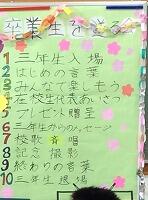 卒業生を送る
1 三年生入場
2 はじめの言葉
3 みんなで楽しもう
4 在校生代表あいさつ
5 プレゼント贈呈
6 三年生からのメッセージ
7 校歌斉唱
8 記念撮影
9 終わりの言葉
10 三年生退場